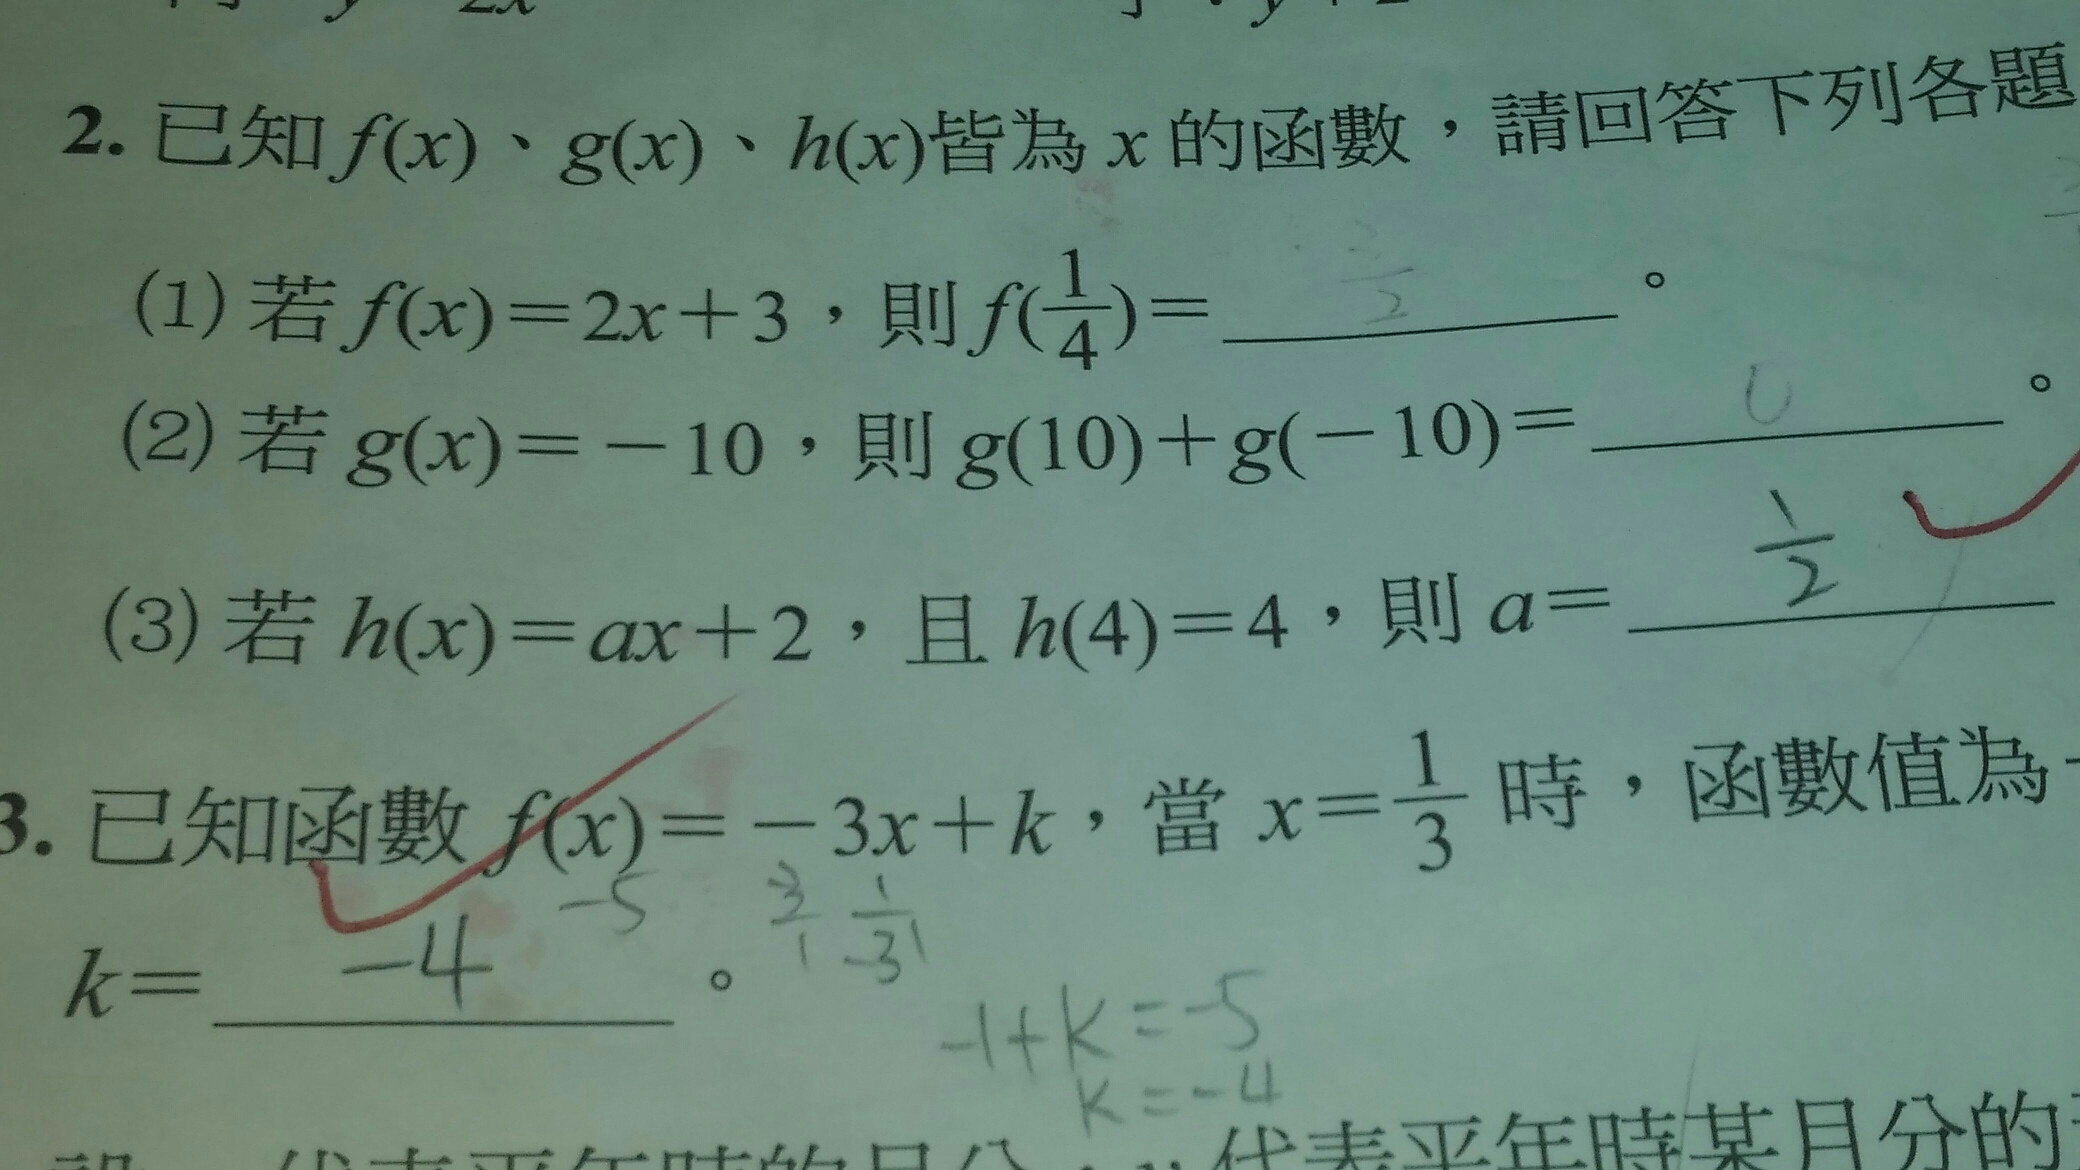 2x
2. 已知 f(x)、g(x)、h(x)皆為 x 的函數，請回答下列各題
(1) 若 f(x)=2x+3，則 f(1/4)=　　。
2
(2) 若 g(x)=－10，則 g(10)+g(－10)=　0　。
(3) 若 h(x)=ax+2，且 h(4)=4，則 a= 1/2
3. 已知函數 f(x)=－3x+k，當 x=1/3 時，函數值為
-5
k= -4 。
-1+k=-5
k=-4
代表平年時某月分的